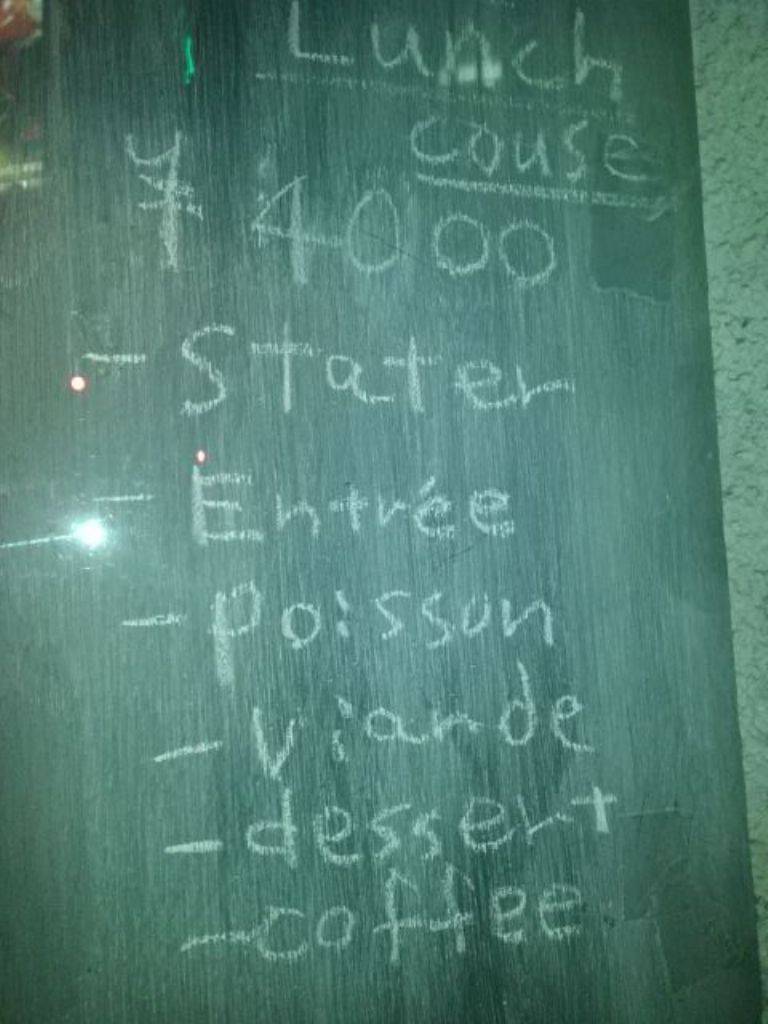 Lunch
couse
¥ 4000
- Stater
- Entrée
- poisson
- Viande
- dessert
- coffee